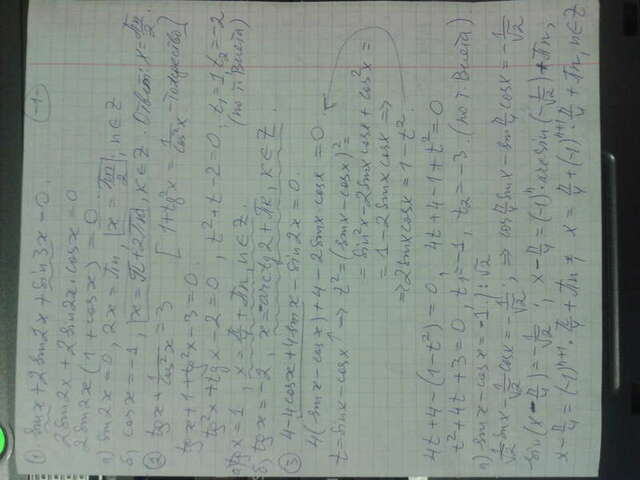 (-1-)
① sinx+2sin2x+sin3x=0.
2sin2x+2sin2x·cosx=0
2sin2x(1+cosx)=0
а) sin2x=0, 2x=πn, x=πn/2, n∈Z
б) cosx=-1, x=π+2πk, k∈Z. Ответ: x=πn/2.
② tgx+1/cos²x=3 [1+tg²x=1/cos²x - тождество]
tgx+1+tg²x-3=0.
tg²x+tgx-2=0, t²+t-2=0. t₁=1, t₂=-2
(по т. Виета)
а) tgx=1, x=π/4+πn, n∈Z.
б) tgx=-2, x=-arctg2+πk, k∈Z.
③ 4-4cosx+4sinx-sin2x=0.
4(sinx-cosx)+4-2sinxcosx=0
t=sinx-cosx ⇒ t²=(sinx-cosx)²=
=sin²x-2sinxcosx+cos²x=
=1-2sinxcosx ⇒
⇒2sinxcosx=1-t².
4t+4-(1-t²)=0, 4t+4-1+t²=0
t²+4t+3=0, t₁=-1, t₂=-3. (по т. Виета)
а) sinx-cosx=-1 |:√2
1/√2 sinx-1/√2 cosx=-1/√2, ⇒ cos π/4 sinx-sin π/4 cosx=-1/√2
sin(x-π/4)=-1/√2, x-π/4=(-1)ⁿ·arcsin(-1/√2)+πn,
x-π/4=(-1)ⁿ⁺¹·π/4+πn, x=π/4+(-1)ⁿ⁺¹·π/4+πn, n∈Z